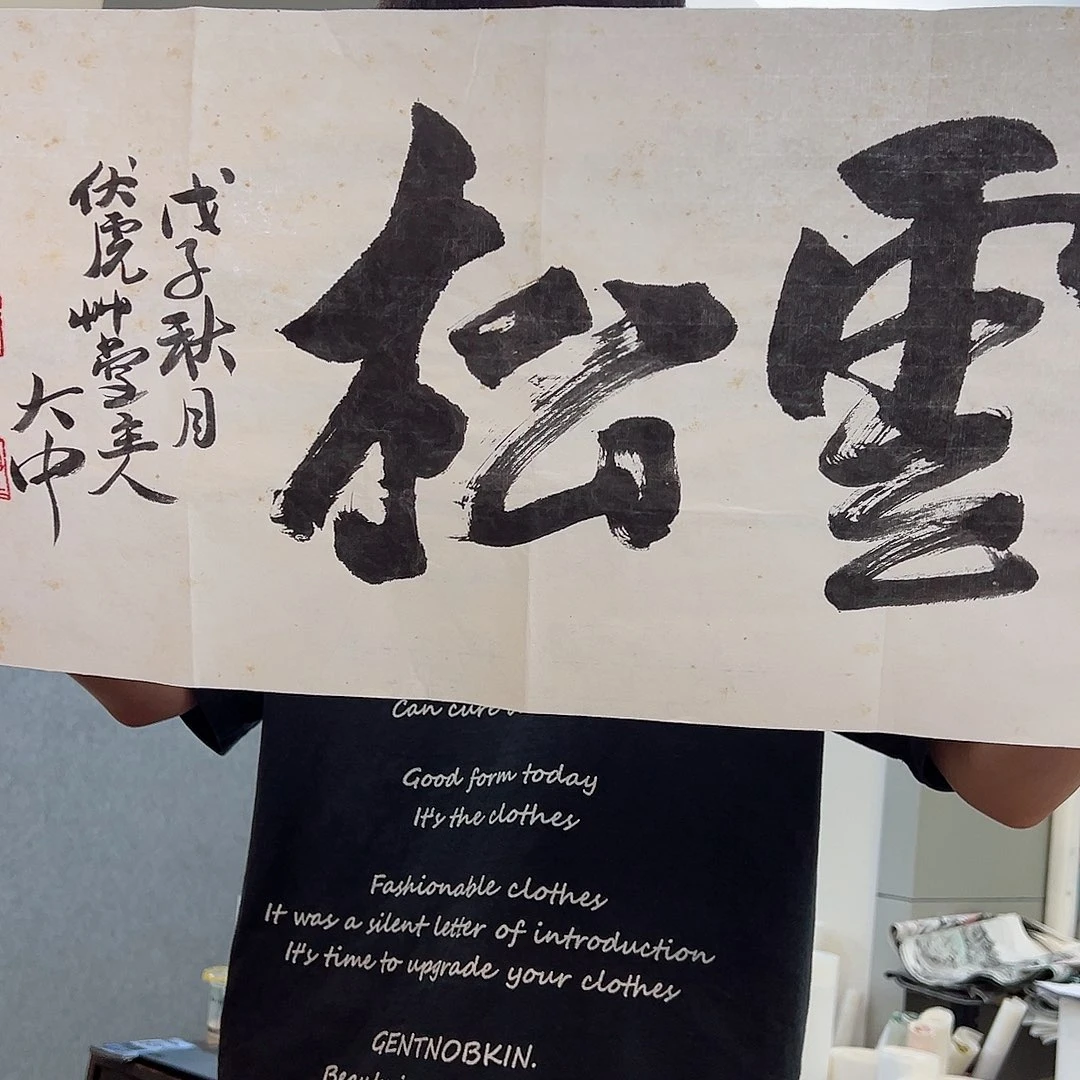 雲松
戊子秋月
伏虎艸堂主人
大中
Can cure
Good form today
It's the clothes
Fashionable clothes
It was a silent letter of introduction
It's time to upgrade your clothes
GENTNOBKIN.